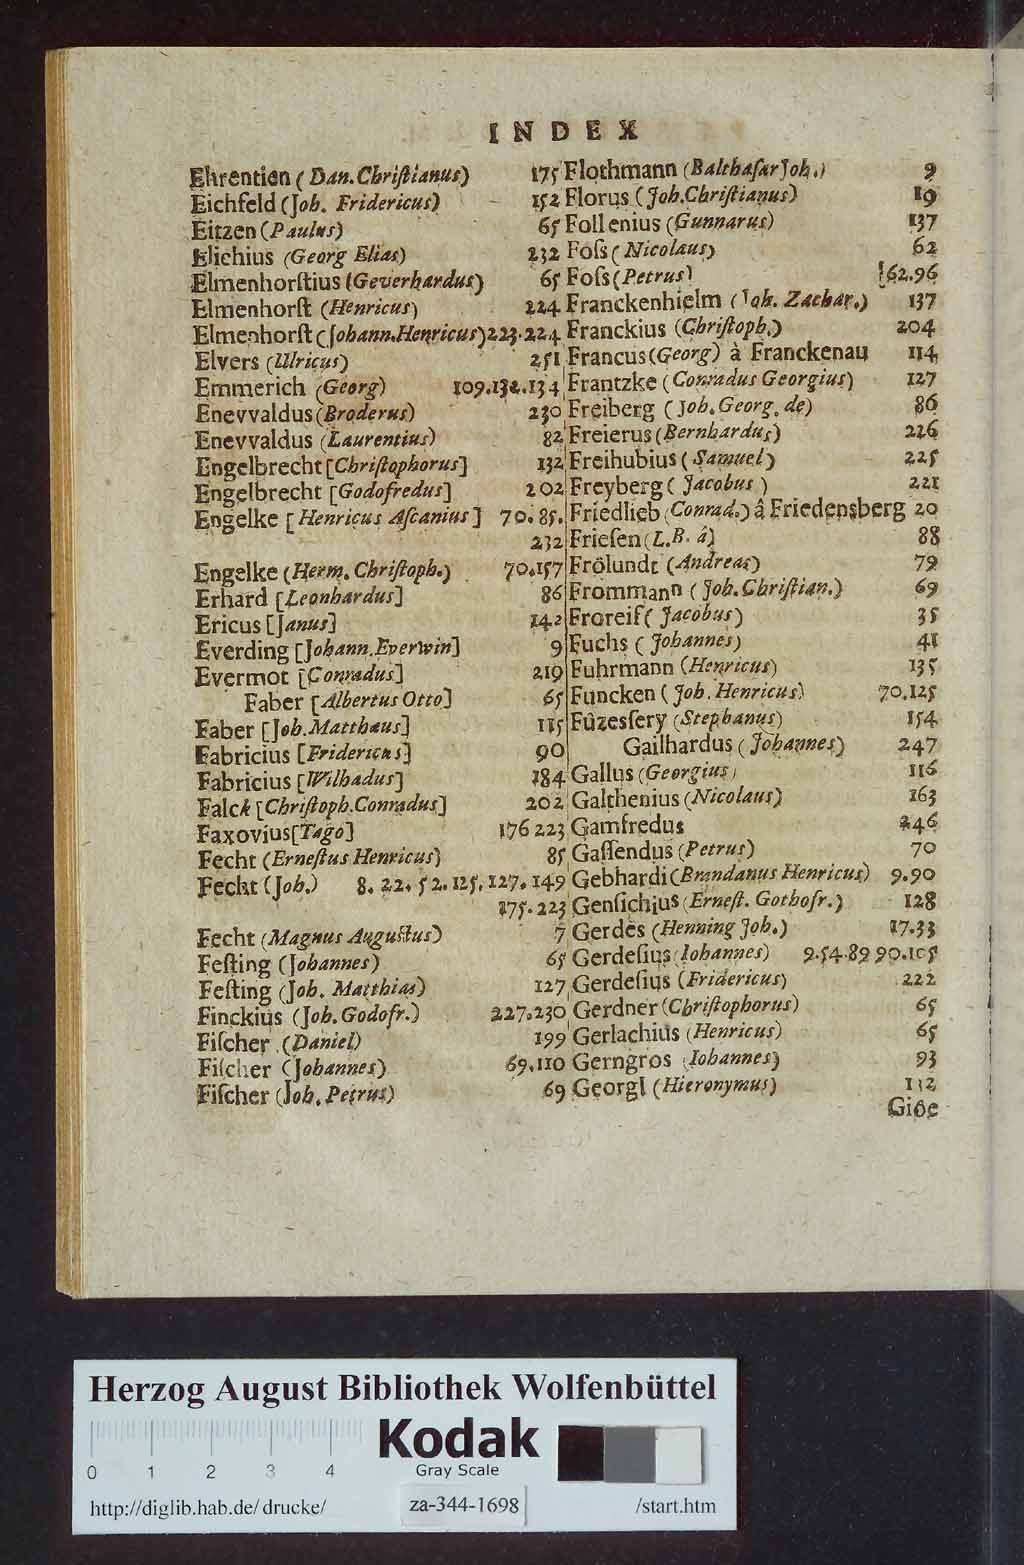 INDEX
Ehrentien (Dan. Chriſtianus) 175
Eichfeld (Joh. Fridericus) 152
Eitzen (Paulus) 65
Elichius (Georg Elias) 232
Elmenhorſtius (Geverhardus) 65
Elmenhorſt (Henricus) 224
Elmenhorſt (Johann. Henricus) 223.224
Elvers (Ulricus) 251
Emmerich (Georg) 109.132.134
Enevvaldus (Broderus) 230
Enevvaldus (Laurentius) 82
Engelbrecht [Chriſtophorus] 132
Engelbrecht [Godofredus] 202
Engelke [Henricus Aſcanius] 70.85.
232
Engelke (Herm. Chriſtoph.) 70.157
Erhard [Leonhardus] 86
Ericus [Janus] 142
Everding [Johann. Everwin] 9
Evermot [Conradus] 219
Faber [Albertus Otto] 65
Faber [Joh. Matthæus] 115
Fabricius [Fridericus] 90
Fabricius [Wilhadus] 184
Falck [Chriſtoph. Conradus] 202
Faxovius [Tago] 176 223
Fecht (Erneſtus Henricus) 85
Fecht (Joh.) 8. 22. 52. 125. 127. 149
175.223
Fecht (Magnus Auguſtus) 7
Feſting (Johannes) 65
Feſting (Joh. Matthias) 127
Finckius (Joh. Godofr.) 227.230
Fiſcher (Daniel) 199
Fiſcher (Johannes) 69.110
Fiſcher (Joh. Petrus) 69
Flothmann (Balthaſar Joh.) 9
Florus (Joh. Chriſtianus) 19
Follenius (Gunnarus) 137
Foſs (Nicolaus) 62
Foſs (Petrus) 62.96
Franckenhielm (Joh. Zachar.) 137
Franckius (Chriſtoph.) 204
Francus (Georg) à Franckenau 114
Frantzke (Conradus Georgius) 127
Freiberg (Joh. Georg. de) 86
Freierus (Bernhardus) 226
Freihubius (Samuel) 225
Freyberg (Jacobus) 221
Friedlieb (Conrad.) â Friedensberg 20
Frieſen (L.B. á) 88
Frölundt (Andreas) 79
Frommann (Joh. Chriſtian.) 69
Froreif (Jacobus) 35
Fuchs (Johannes) 41
Fuhrmann (Henricus) 135
Funcken (Joh. Henricus) 70.125
Fûzesſery (Stephanus) 154
Gailhardus (Johannes) 247
Gallus (Georgius) 116
Galthenius (Nicolaus) 163
Gamfredus 246
Gaſſendus (Petrus) 70
Gebhardi (Brandanus Henricus) 9.90
Genſichius (Erneſt. Gothofr.) 128
Gerdes (Henning Joh.) 17.33
Gerdeſius (Iohannes) 9.54.89 90.105
Gerdeſius (Fridericus) 222
Gerdner (Chriſtophorus) 65
Gerlachius (Henricus) 65
Gerngros (Iohannes) 93
Georgl (Hieronymus) 132
Giße
Herzog August Bibliothek Wolfenbüttel
Kodak
Gray Scale
0 1 2 3 4
http://diglib.hab.de/drucke/ za-344-1698 /start.htm